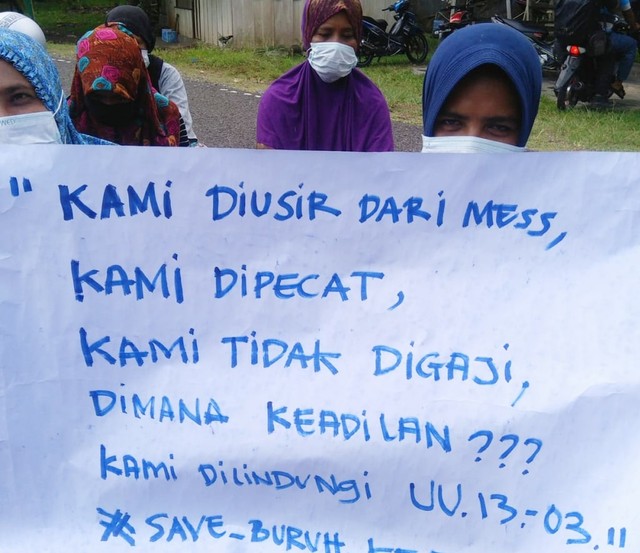 " KAMI DIUSIR DARI MESS,
KAMI DIPECAT,
KAMI TIDAK DIGAJI,
DIMANA KEADILAN ???
KAMI DILINDUNGI UU.13.-03."
# SAVE_BURUH